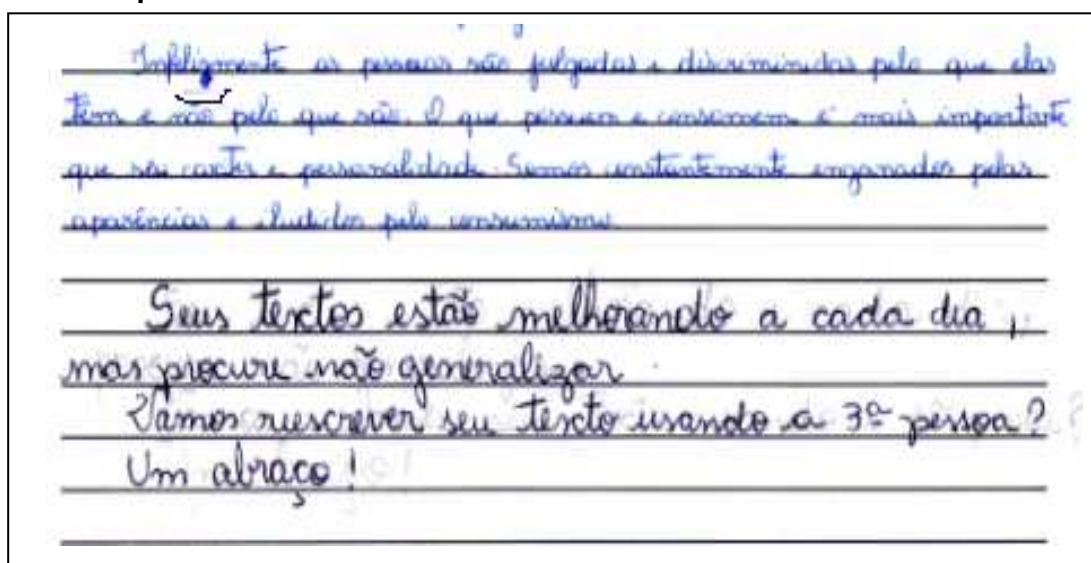 Infelizmente as pessoas são julgadas e discriminidas pelo que elas
têm e não pelo que são. O que possuem e consomem é mais importante
que seu caráter e personalidade. Somos constantemente enganados pelas
aparências e iludidos pelo consumismo.
Seus textos estão melhorando a cada dia,
mas procure não generalizar.
Vamos reescrever seu texto usando a 3ª pessoa?
Um abraço!